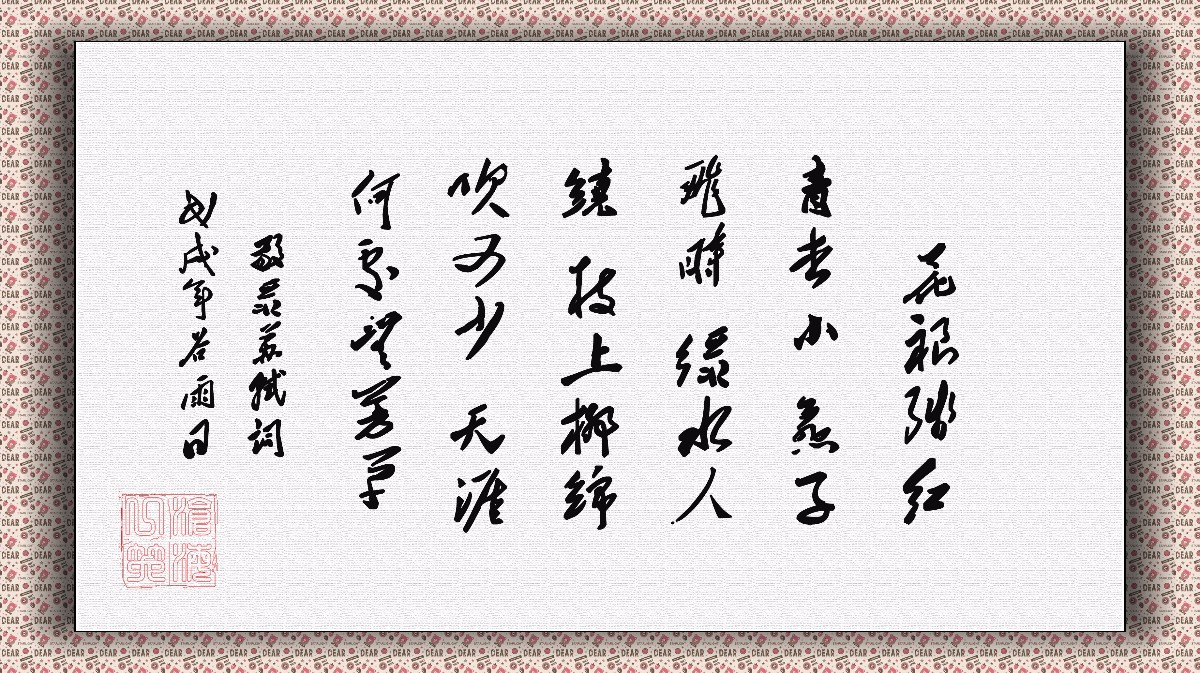 花褪残红
青杏小燕子
飛時绿水人
繞枝上柳綿
吹又少天涯
何處無芳草
敬录苏轼词
戊戌年谷雨日
DEAR